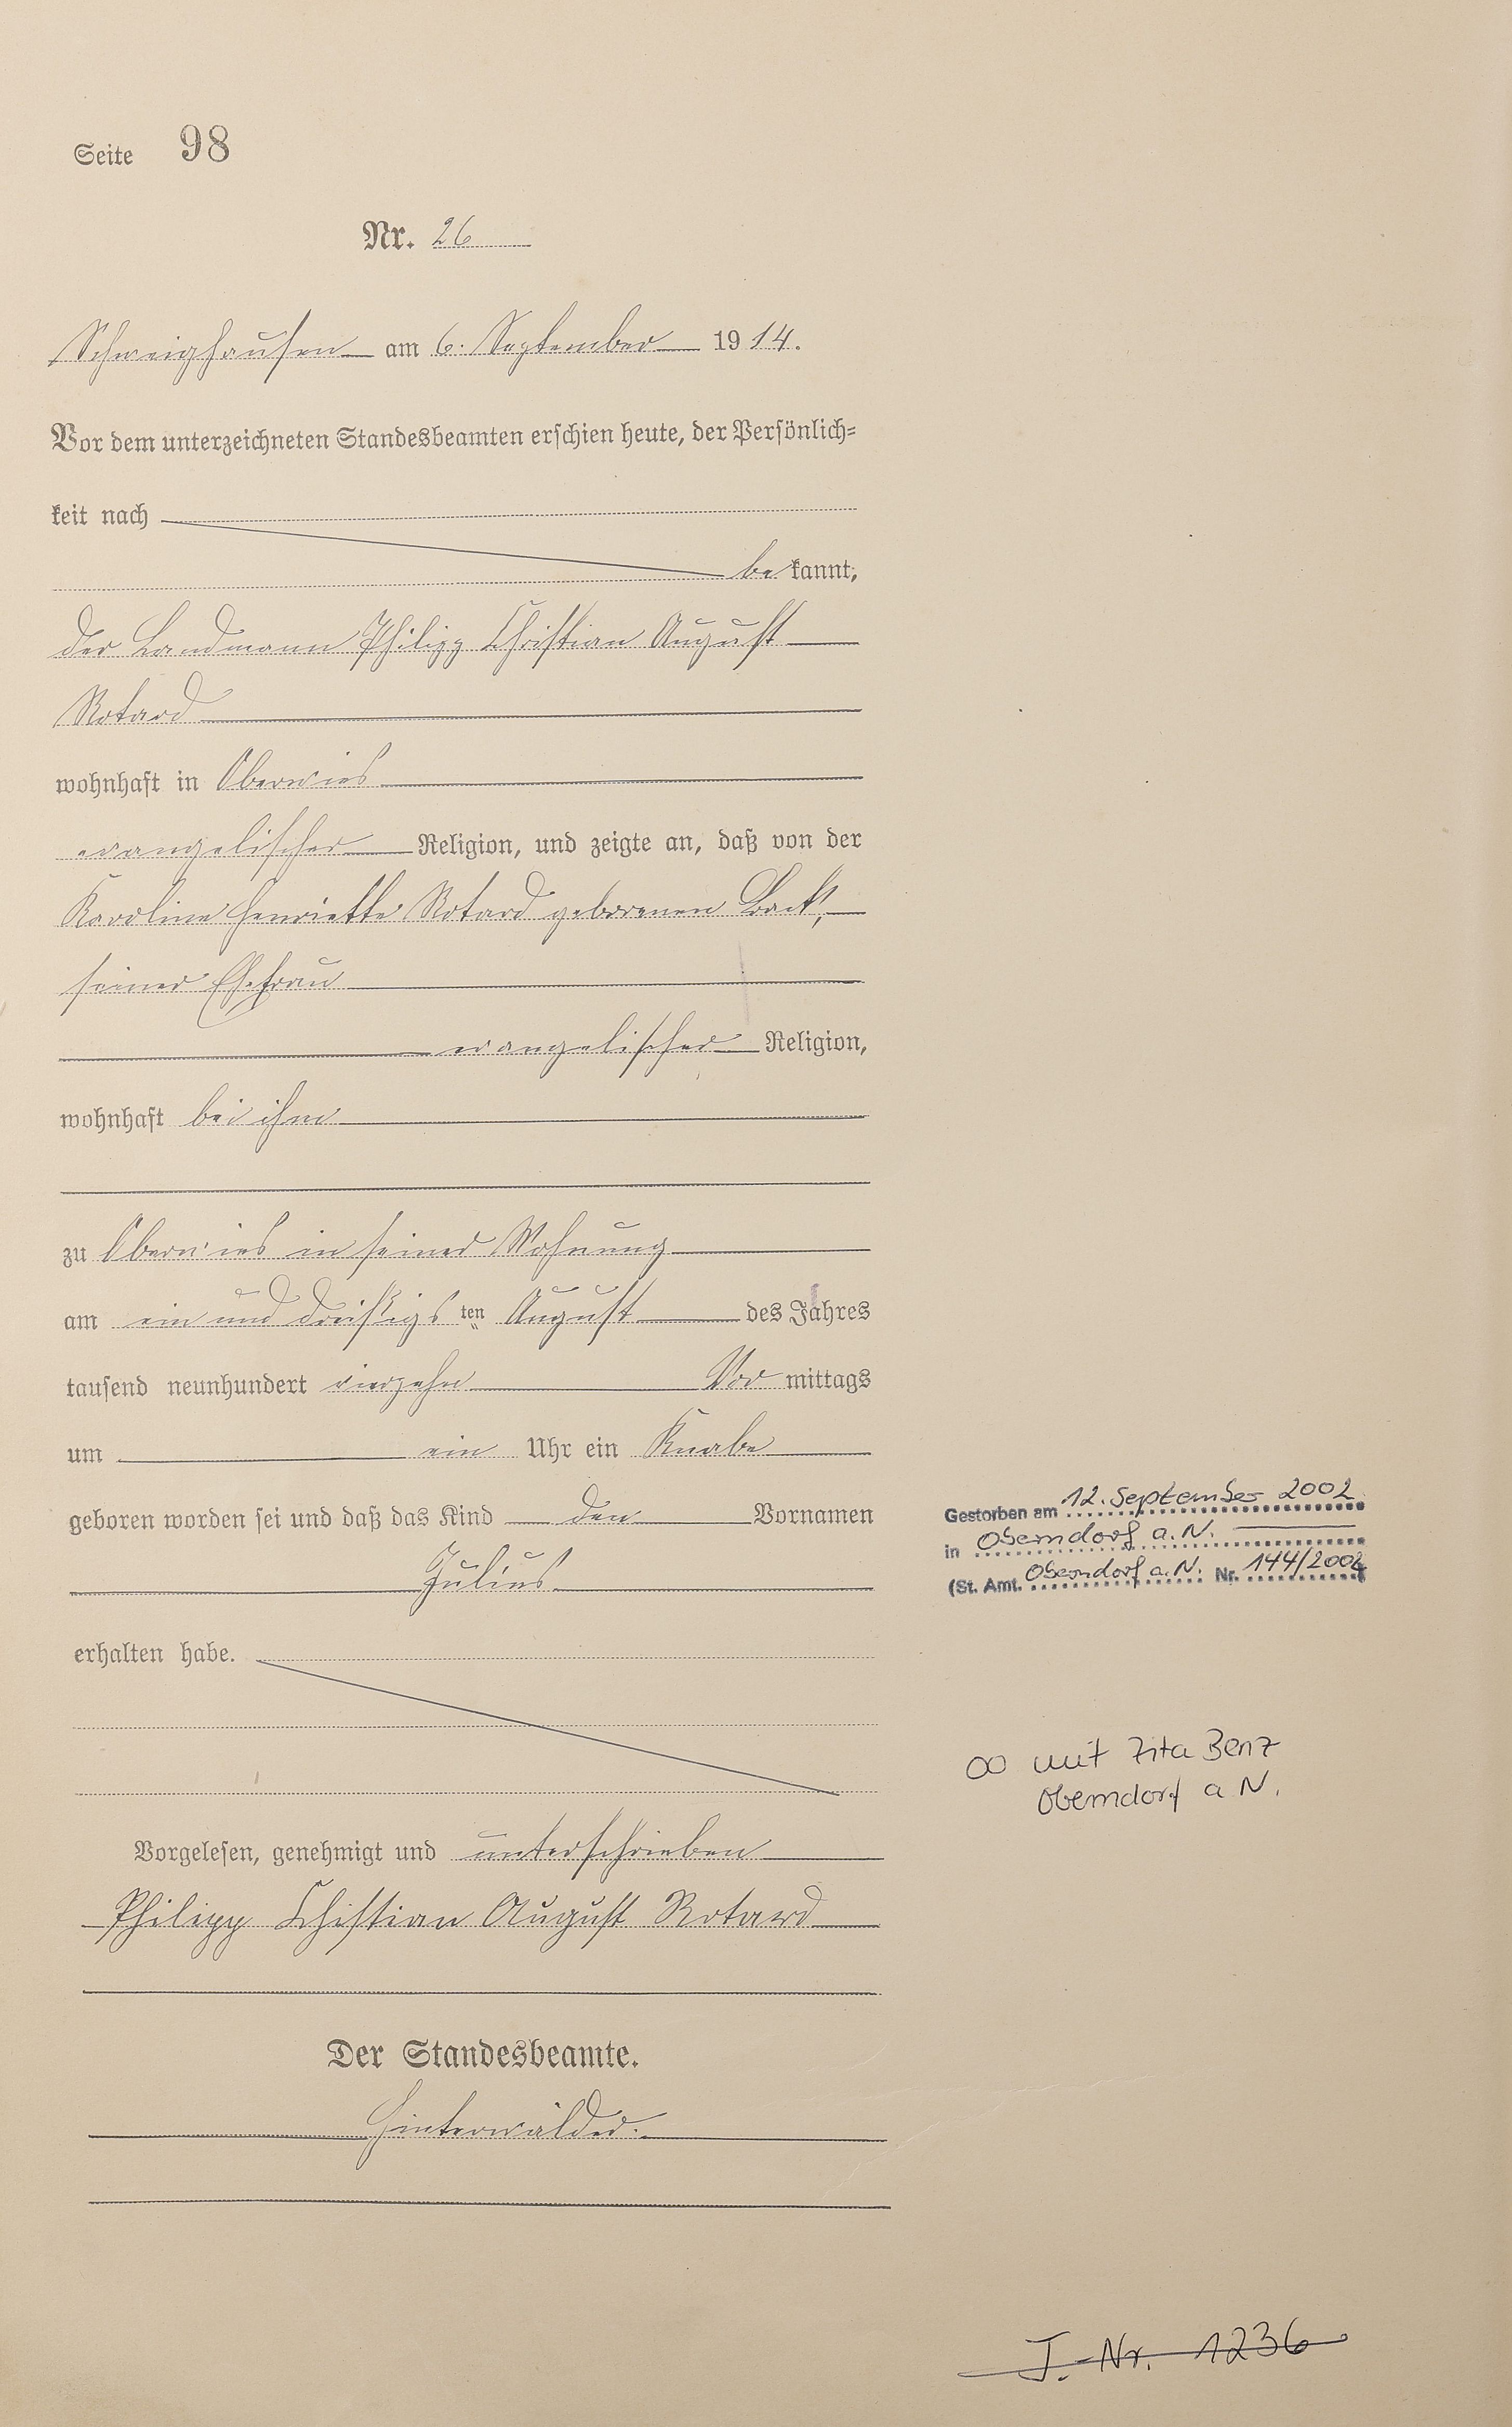 Seite 98
Nr. 26
Schweighausen am 6. September 1914.
Vor dem unterzeichneten Standesbeamten erschien heute, der Persönlich-
keit nach
bekannt,
der Landmann Philipp Christian August
Rotard
wohnhaft in Oberwies
evangelischer Religion, und zeigte an, daß von der
Karoline Henriette Rotard geborenen
seiner Ehefrau
evangelischer Religion,
wohnhaft bei ihm
zu Oberwies in seiner Wohnung
am ein und dreißigsten August des Jahres
tausend neunhundert vierzehn Vormittags
um ein Uhr ein Knabe
geboren worden sei und daß das Kind den Vornamen
Julius
erhalten habe.
Vorgelesen, genehmigt und unterschrieben
Philipp Christian August Rotard
Der Standesbeamte.
Hinterwälder.
Gestorben am 12. September 2002
in Oberndorf a. N.
(St. Amt. Oberndorf a. N. Nr. 144/2002
∞ mit Zita Benz
Oberndorf a N.
J.-Nr. 1236